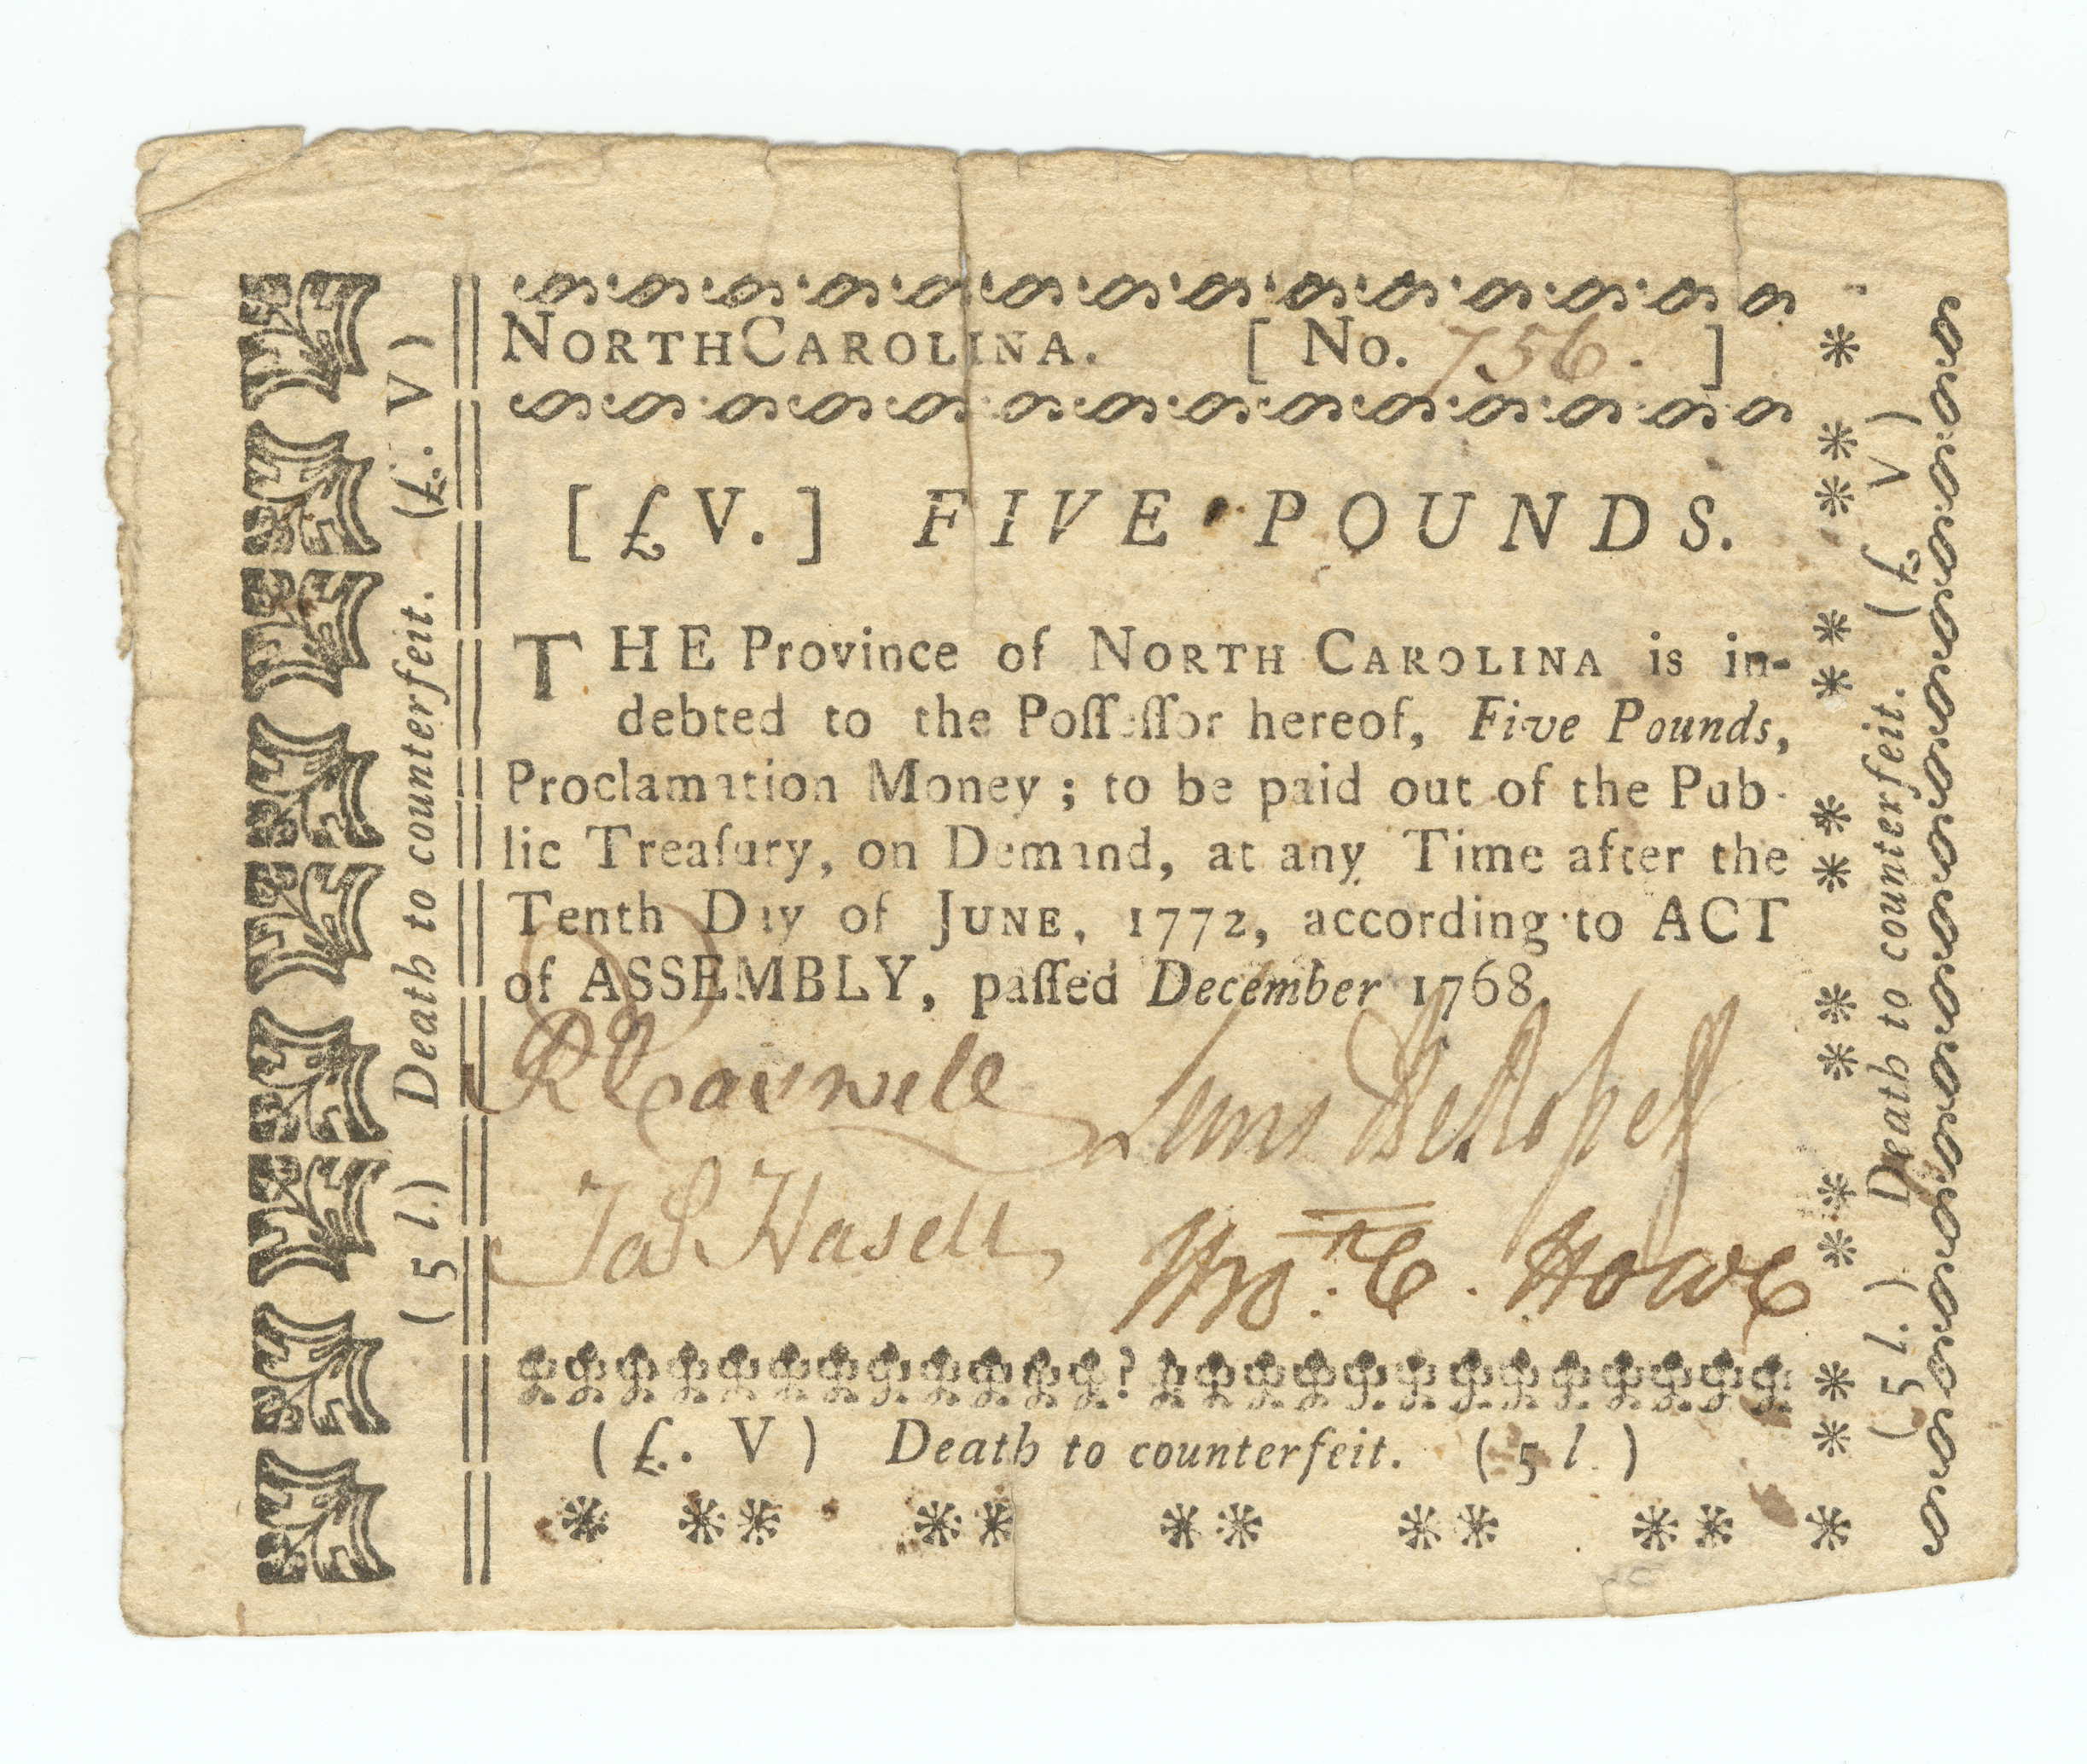 NORTHCAROLINA. [ No. 756. ]
[ £ V. ] FIVE POUNDS.
THE Province of NORTH CAROLINA is in-
debted to the Poſſeſſor hereof, Five Pounds,
Proclamation Money ; to be paid out of the Pub-
lic Treaſury, on Demand, at any Time after the
Tenth Day of JUNE, 1772, according to ACT
of ASSEMBLY, paſſed December 1768.
R Caswell Lewis DeRosset
Jas. Hasell Jno: Howe
(£. V) Death to counterfeit. (5 l.)
(5 l.) Death to counterfeit. (£. V)
(5 l.) Death to counterfeit. (£ V)